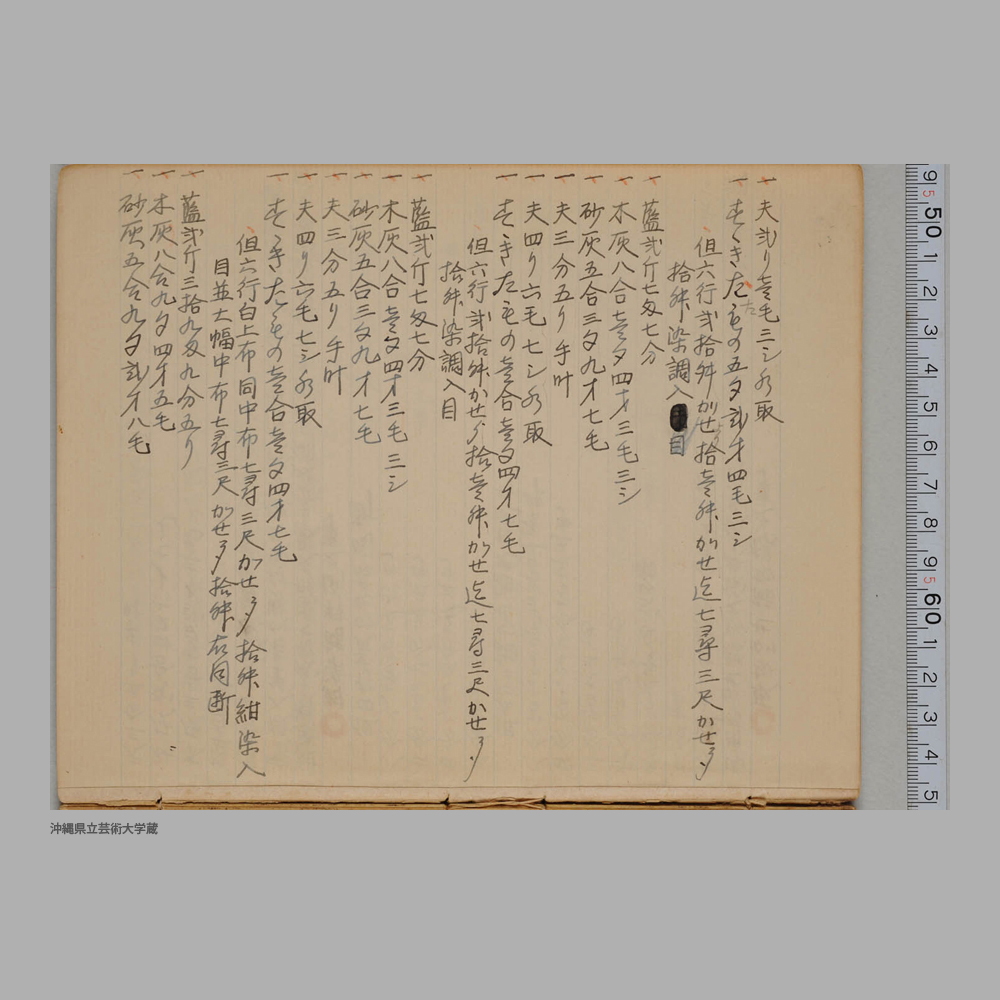 一 夫弐り壱毛三シ水取
一 すゝきたもの五夕弐才四毛三シ
但六行弐拾舛かせ拾壱舛かせ迄七尋三尺かせ
拾舛染調入目
一 藍弐斤七匁七分
一 木灰八合壱夕四才三毛三シ
一 砂灰五合三夕九才七毛
一 夫三分五り手叶
一 夫四り六毛七シ水取
一 すゝきたもの壱合壱夕四才七毛
但六行弐拾舛かせ拾壱舛かせ迄七尋三尺かせ
拾舛染調入目
一 藍弐斤七匁七分
一 木灰八合壱夕四才三毛三シ
一 砂灰五合三夕九才七毛
一 夫三分五り手叶
一 夫四り六毛七シ水取
一 すゝきたもの壱合壱夕四才七毛
但六行白上布同中布七尋三尺かせ拾舛紺染入
目並大幅中布七尋三尺かせ拾舛右同断
一 藍弐斤三拾九匁九分五り
一 木灰八合九夕四才五毛
一 砂灰五合九夕弐才八毛
9 50 1 2 3 4 5 6 7 8 9 60 1 2 3 4 5
沖縄県立芸術大学蔵